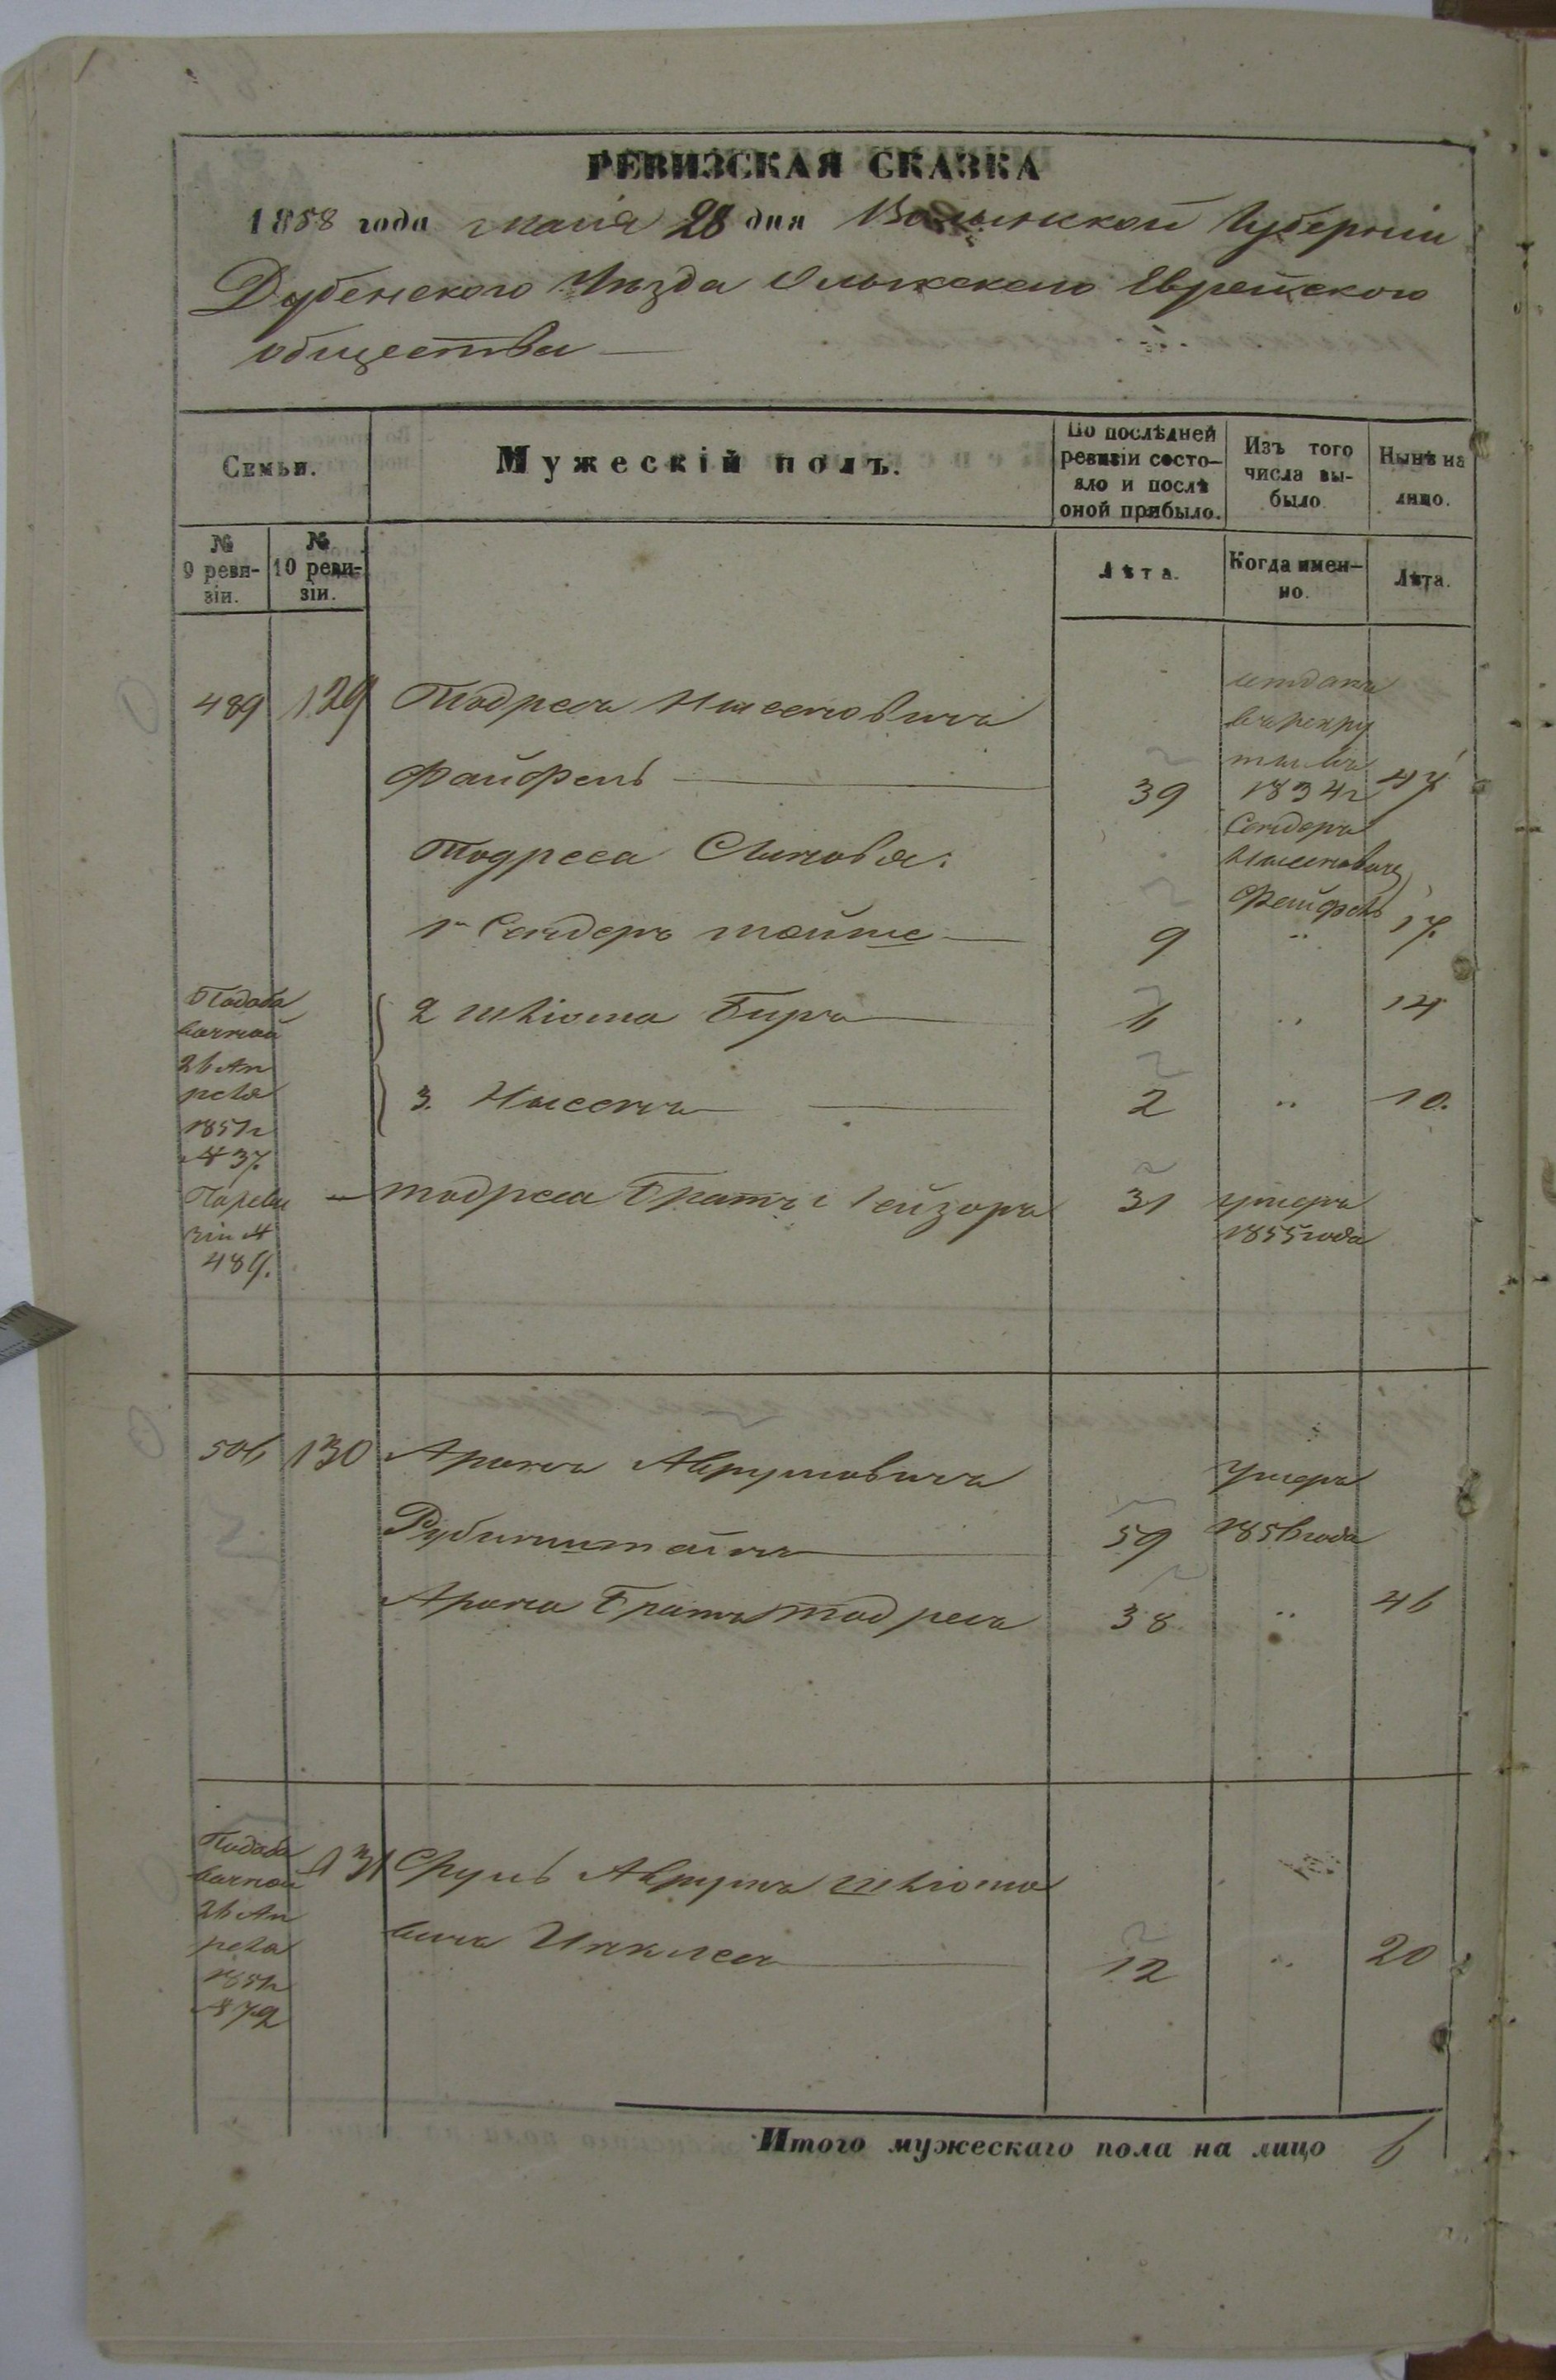 РЕВИЗСКАЯ СКАЗКА
1858 года маія 28 дня Волынской Губерніи
Дубенского Уѣзда Олыкского Еврейского
общества
Семьи.
Мужескій полъ.
По послѣдней
ревизіи состо-
яло и послѣ
оной прибыло.
Изъ того
числа вы-
было
Нынѣ на
лицо.
№
9 реви-
зіи.
№
10 реви-
зіи.
Лѣта.
Когда имен-
но.
Лѣта.
489 129 Тодресъ Нисеновичъ
отданъ
въ рекру
ты въ
Файфель 39 1834г 47
Тодреса Сыновья:
Сендеръ
Нисеновичъ
Файфель
1й Сендеръ 9 " 17.
Подоба
вочной
26 Ап
реля
1851г
№ 37.
2 Шліома Беръ 6 " 14
3. Нисенъ 2 " 10.
По реви
зіи №
489.
Тодреса Братъ Лейзоръ 31 умеръ
1855 года
506 130 Аронъ Аврумовичъ умеръ
Рубинштейнъ 59 1856 года
Арона Братъ Тодресъ 38 " 46
Подоба
вочной
26 Ап
реля
1851г
№ 72
131 Сруль Аврумъ Шліомо
вичъ 12 " 20
Итого мужескаго пола на лицо 6